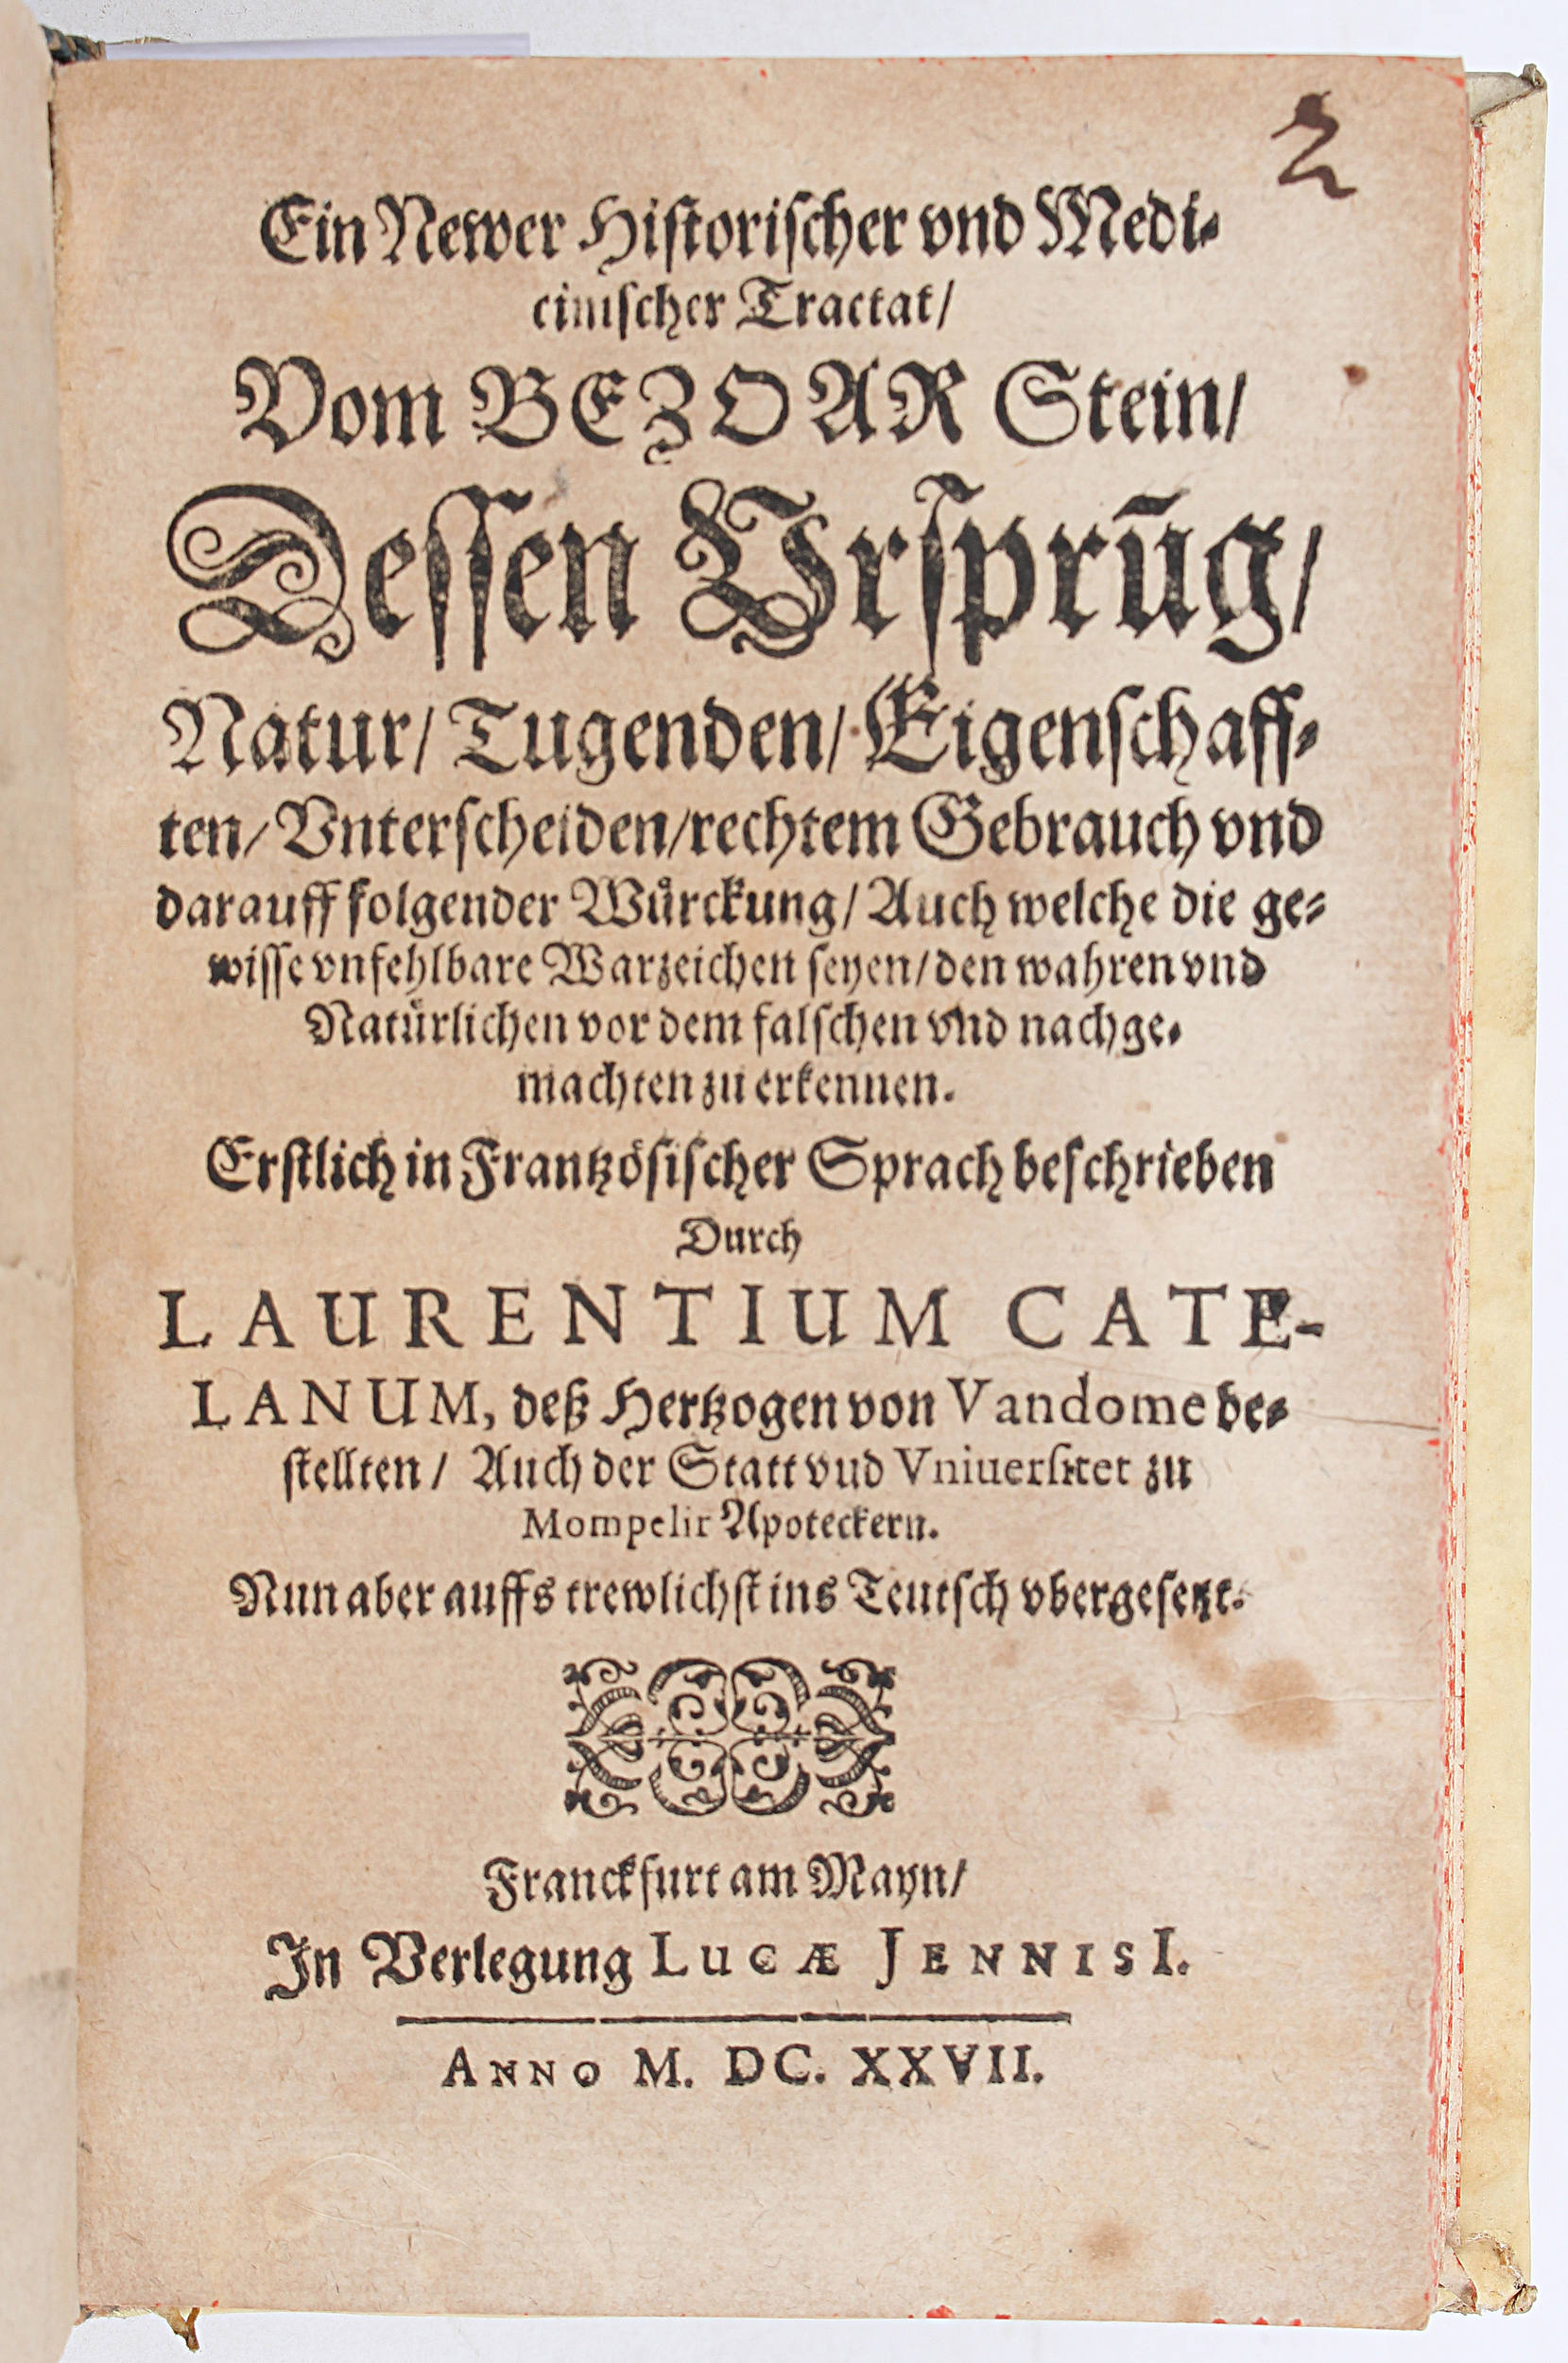 2
Ein Newer Historischer vnd Medi-
cinischer Tractat/
Vom BEZOAR Stein/
Dessen Vrsprūg/
Natur/ Tugenden/ Eigenschaff-
ten/ Vnterscheiden/ rechtem Gebrauch vnd
darauff folgender Wuͤrckung/ Auch welche die ge-
wisse vnfehlbare Warzeichen seyen/ den wahren vnd
Natuͤrlichen vor dem falschen vnd nachge-
machten zu erkennen.
Erstlich in Frantzösischer Sprach beschrieben
Durch
LAURENTIUM CATE-
LANUM, deß Hertzogen von Vandome be-
stellten / Auch der Statt vud Vniuersitet zu
Mompelir Apoteckern.
Nun aber auffs trewlichst ins Teutsch vbergesetzt.
Franckfurt am Mayn/
In Verlegung LUCÆ JENNISI.
ANNO M. DC. XXVII.